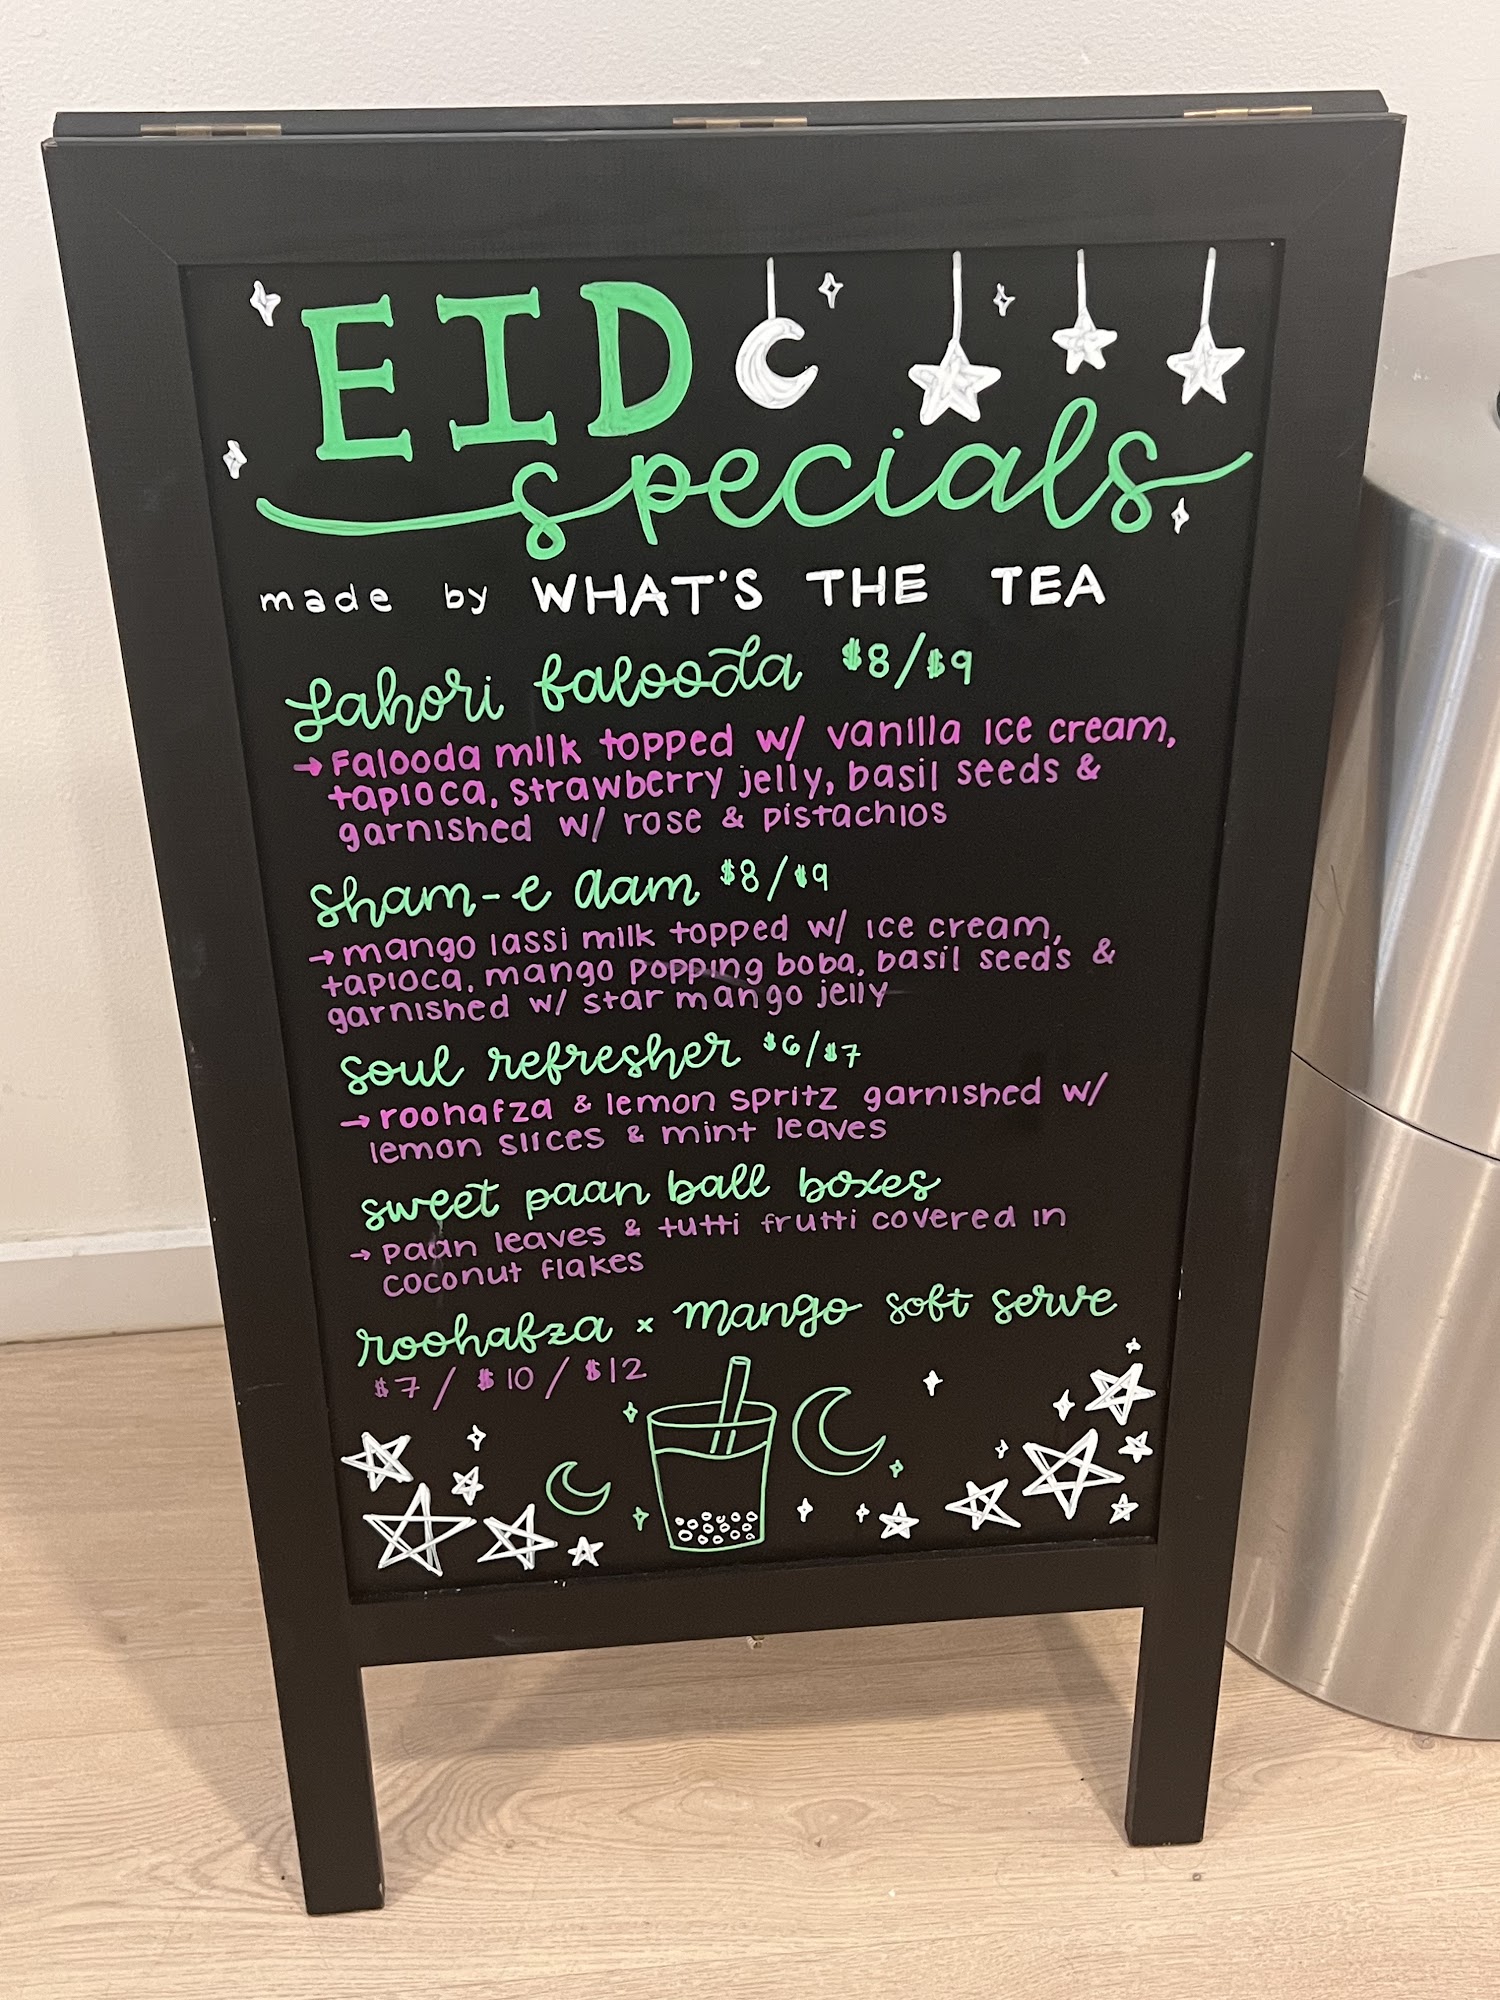 EID
specials
made by WHAT'S THE TEA
Lahori falooda $8/$9
→ Falooda milk topped w/ vanilla ice cream,
tapioca, strawberry jelly, basil seeds &
garnished w/ rose & pistachios
Sham-e aam $8/$9
→ mango lassi milk topped w/ ice cream,
tapioca, mango popping boba, basil seeds &
garnished w/ star mango jelly
soul refresher $6/$7
→ roohafza & lemon spritz garnished w/
lemon slices & mint leaves
sweet paan ball boxes
→ paan leaves & tutti frutti covered in
coconut flakes
roohafza x mango soft serve
$7 / $10 / $12